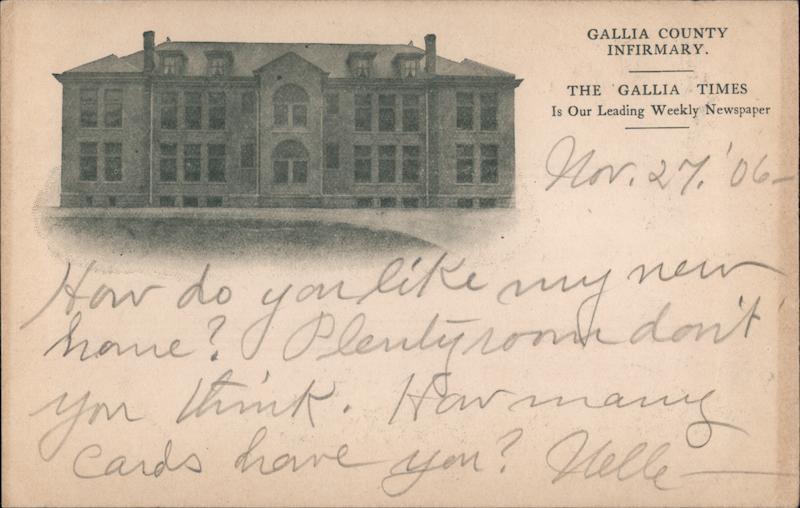 GALLIA COUNTY
INFIRMARY.
THE GALLIA TIMES
Is Our Leading Weekly Newspaper
Nov. 27. '06-
How do you like my new
home? Plenty room don't
you think. How many
cards have you? Nelle